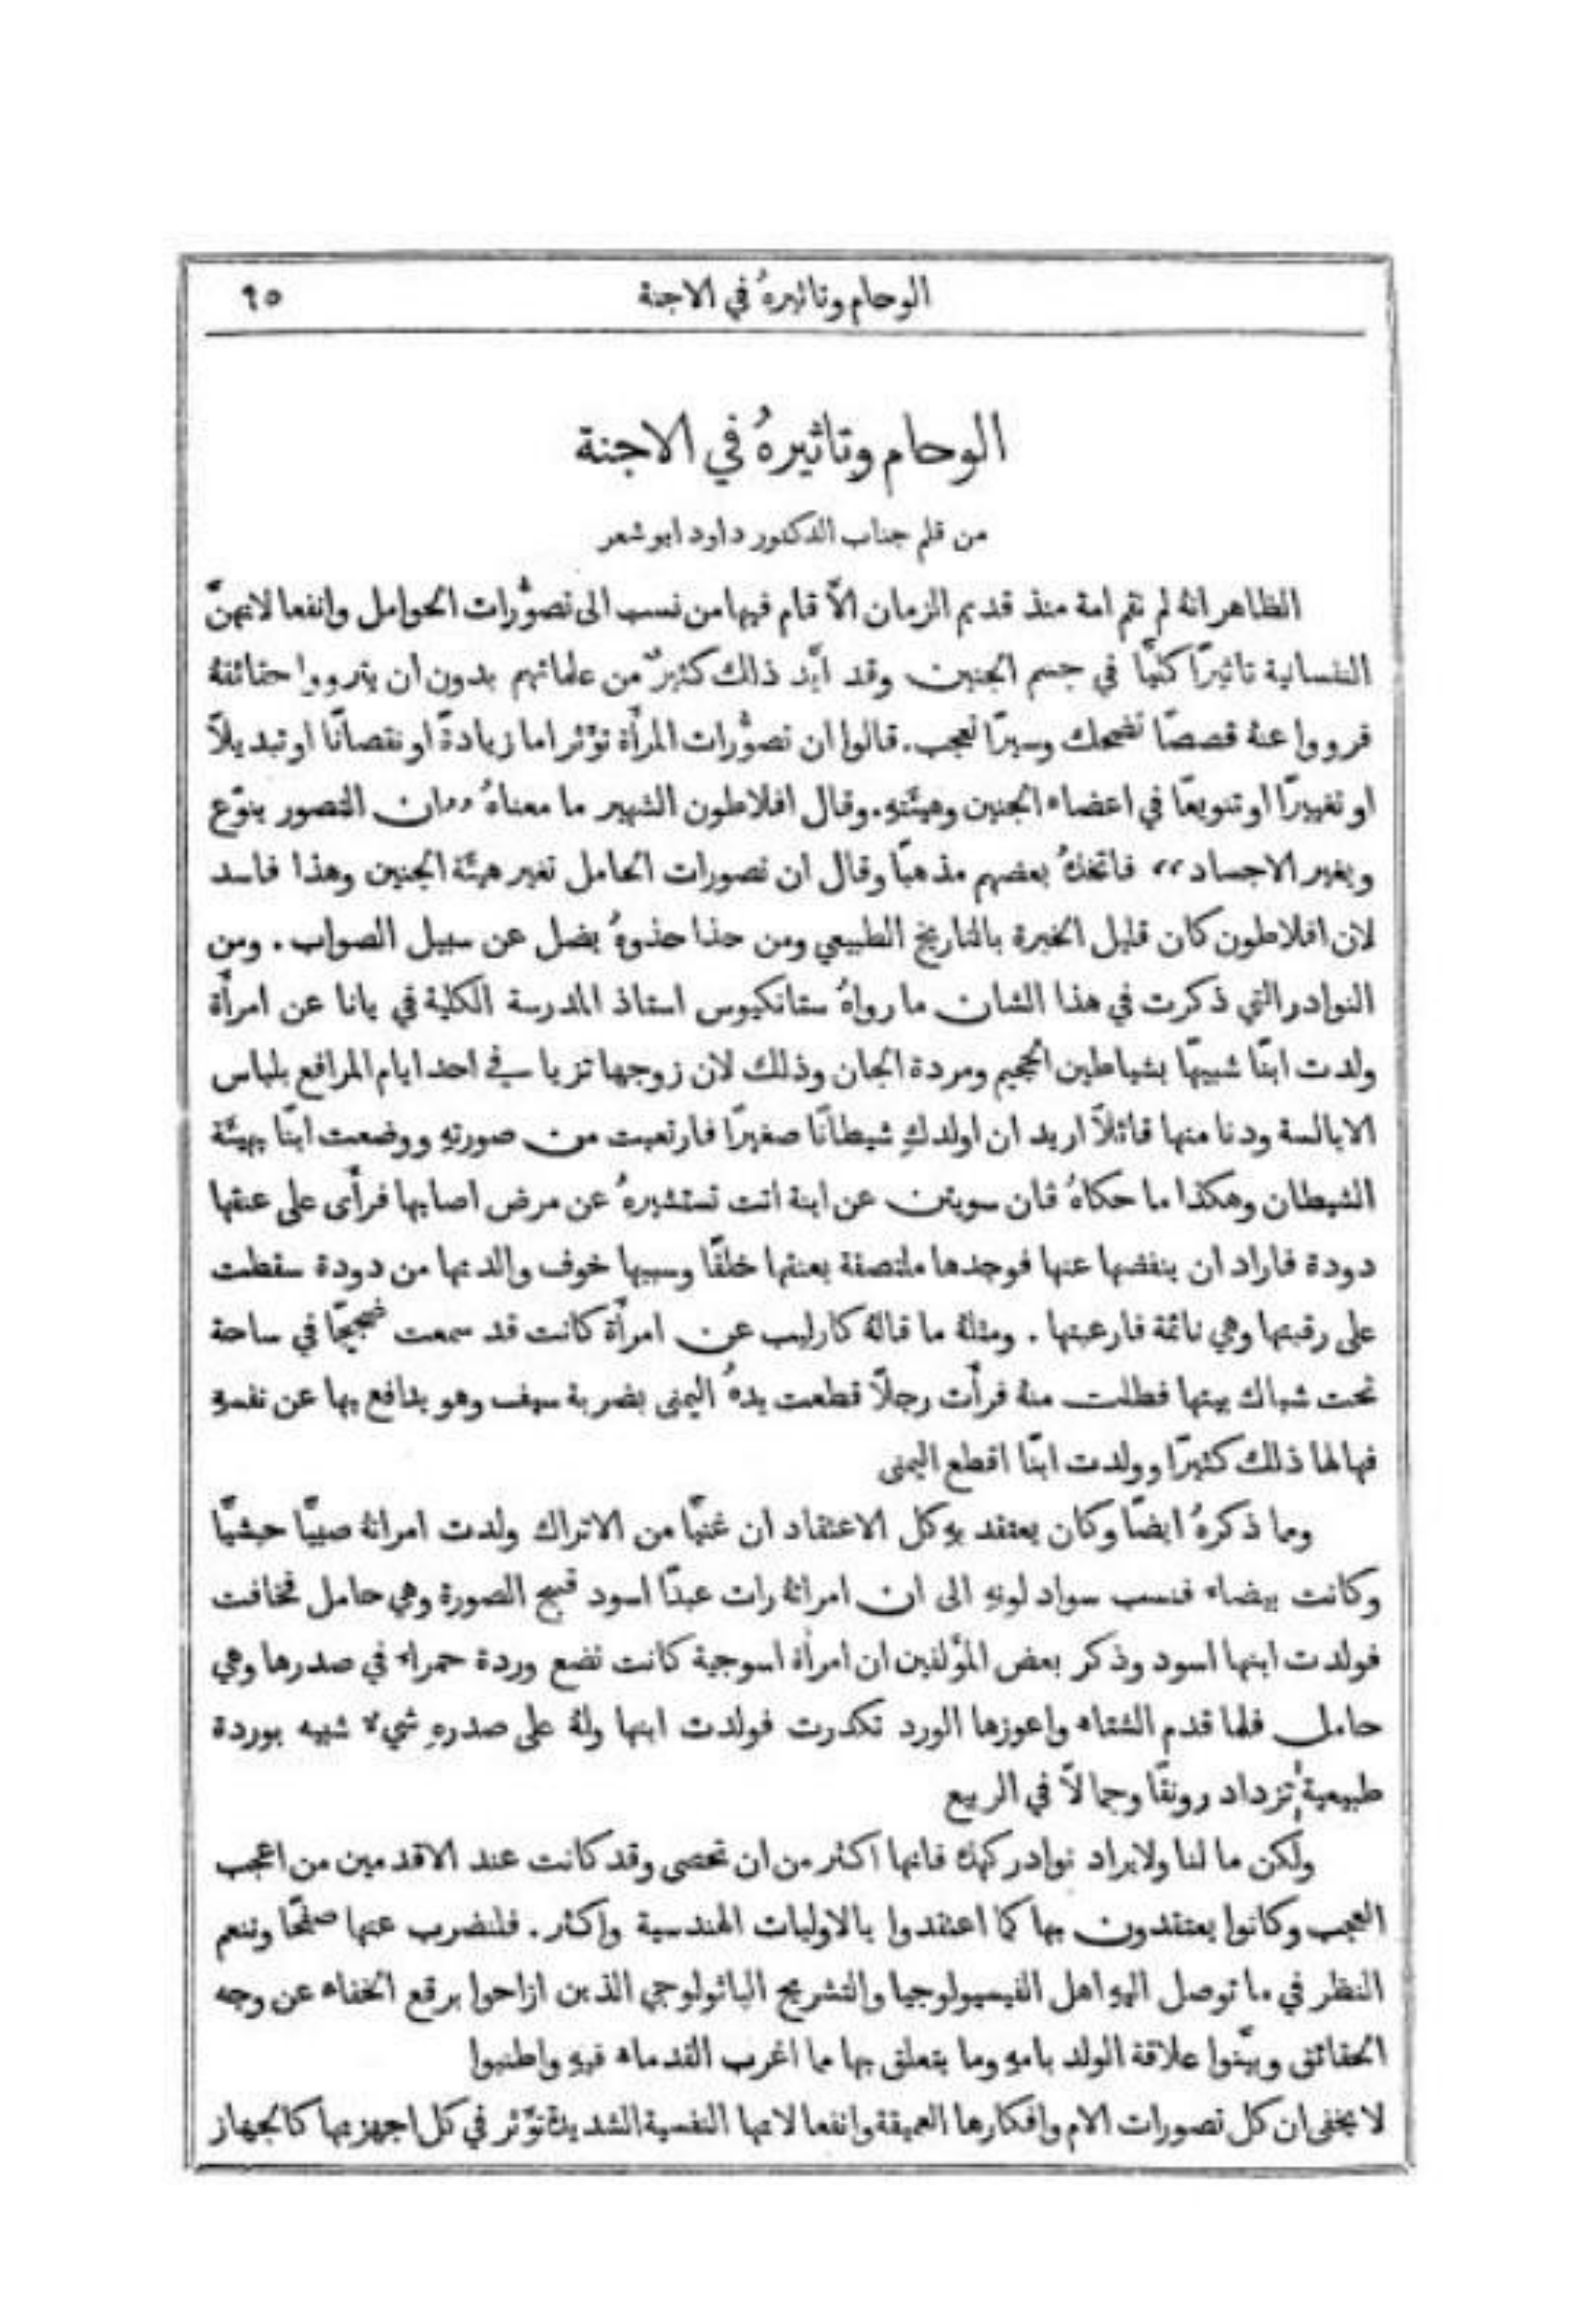 الوحام وتاثيرهُ في الاجنة
٩٥
الوحام وتاثيرهُ في الاجنة
من قلم جناب الدكتور داود ابو شعر
الظاهر انهُ لم تقم امة منذ قديم الزمان الاَّ قام فيها من نسب الى تصوُّرات الحوامل وانفعالاتهنَّ
النفسانية تاثيرًا كليًّا في جسم الجنين وقد ايَّد ذلك كثيرٌ من علمائهم بدون ان يترووا حقائقهُ
فرووا عنهُ قصصًا تضحك وسيرًا تعجب. قالوا ان تصوُّرات المرأَة تؤثر اما زيادةً او نقصانًا او تبديلاً
او تغييرًا او تنويعًا في اعضاء الجنين وهيئتهِ. وقال افلاطون الشهير ما معناهُ ،،ان التصور ينوّع
ويغير الاجساد،، فاتخذهُ بعضهم مذهبًا وقال ان تصورات الحامل تغير هيئة الجنين وهذا فاسد
لان افلاطون كان قليل الخبرة بالتاريخ الطبيعي ومن حذا حذوهُ يضل عن سبيل الصواب. ومن
النوادر التي ذكرت في هذا الشان ما رواهُ ستانكيوس استاذ المدرسة الكلية في يانا عن امرأَة
ولدت ابنًا شبيهًا بشياطين الجحيم ومردة الجان وذلك لان زوجها تزيا في احد ايام المرافع بلباس
الابالسة ودنا منها قائلاً اريد ان اولدكِ شيطانًا صغيرًا فارتعبت من صورتهِ ووضعت ابنًا بهيئة
الشيطان وهكذا ما حكاهُ فان سويتن عن ابنة اتت تستشيرهُ عن مرض اصابها فرأَى على عنقها
دودة فاراد ان ينفضها عنها فوجدها ملتصقة بعنقها خلقًا وسببها خوف والدتها من دودة سقطت
على رقبتها وهي نائمة فارعبتها. ومثلهُ ما قالهُ كارليب عن امرأَة كانت قد سمعت ضجيجًا في ساحة
تحت شباك بيتها فطلت منهُ فرأَت رجلاً قطعت يدهُ اليمنى بضربة سيف وهو يدافع بها عن نفسهِ
فهالها ذلك كثيرًا وولدت ابنًا اقطع اليمنى
ومما ذكرهُ ايضًا وكان يعتقد بهِ كل الاعتقاد ان غنيًّا من الاتراك ولدت امراتهُ صبيًّا حبشيًّا
وكانت بيضاء فنسب سواد لونهِ الى ان امراتهُ رات عبدًا اسود قبيح الصورة وهي حامل فخافت
فولدت ابنها اسود وذكر بعض المؤلفين ان امرأة اسوجية كانت تضع وردة حمراء في صدرها وهي
حامل فلما قدم الشتاء واعوزها الورد تكدرت فولدت ابنها ولهُ على صدرهِ شيءٌ شبيه بوردة
طبيعية تزداد رونقًا وجمالاً في الربيع
ولكن ما لنا ولايراد نوادر كهذه فانها اكثر من ان تحصى وقد كانت عند الاقدمين من اعجب
العجب وكانوا يعتقدون بها كما اعتقدوا بالاوليات الهندسية واكثر. فلنضرب عنها صفحًا وننعم
النظر في ما توصل اليهِ اهل الفيسيولوجيا والتشريح الباثولوجي الذين ازاحوا برقع الخفاء عن وجه
الحقائق وبيَّنوا علاقة الولد بامهِ وما يتعلق بها مما اغرب القدماء فيهِ واطنبوا
لا يخفى ان كل تصورات الام وافكارها العميقة وانفعالاتها النفسية الشديدة تؤثر في كل اجهزتها كالجهاز